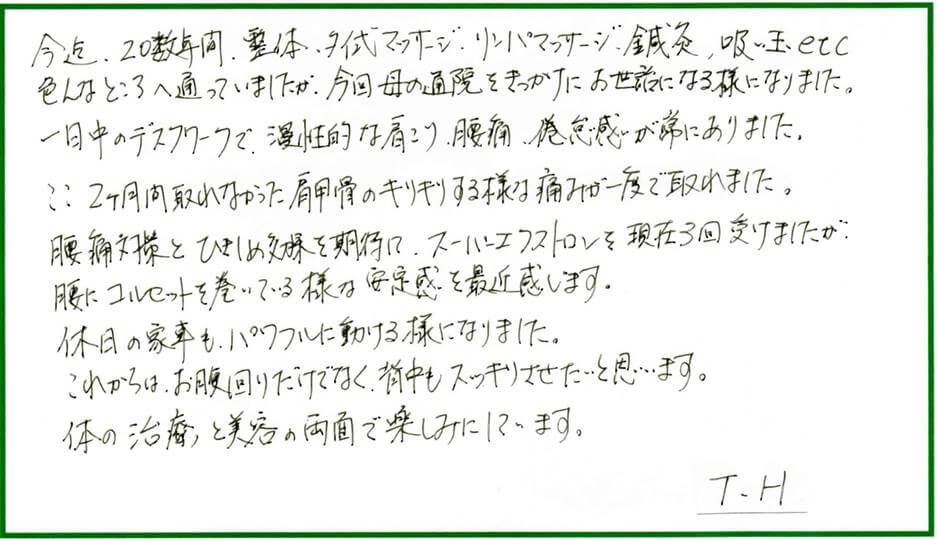 今迄、20数年間、整体、タイ式マッサージ、リンパマッサージ、鍼灸、吸い玉、etc
色んなところへ通っていましたが、今回母の通院をきっかけにお世話になる様になりました。
一日中のデスクワークで、慢性的な肩こり、腰痛、倦怠感が常にありました。
ここ2ヶ月間取れなかった肩甲骨のキリキリする様な痛みが一度で取れました。
腰痛対策とひきしめ効果を期待して、スーパーエクストロンを現在3回受けましたが、
腰にコルセットを巻いている様な安定感を最近感じます。
休日の家事も、パワフルに動ける様になりました。
これからは、お腹回りだけでなく、背中もスッキリさせたいと思います。
体の治療と美容の両面で楽しみにしています。
T-H